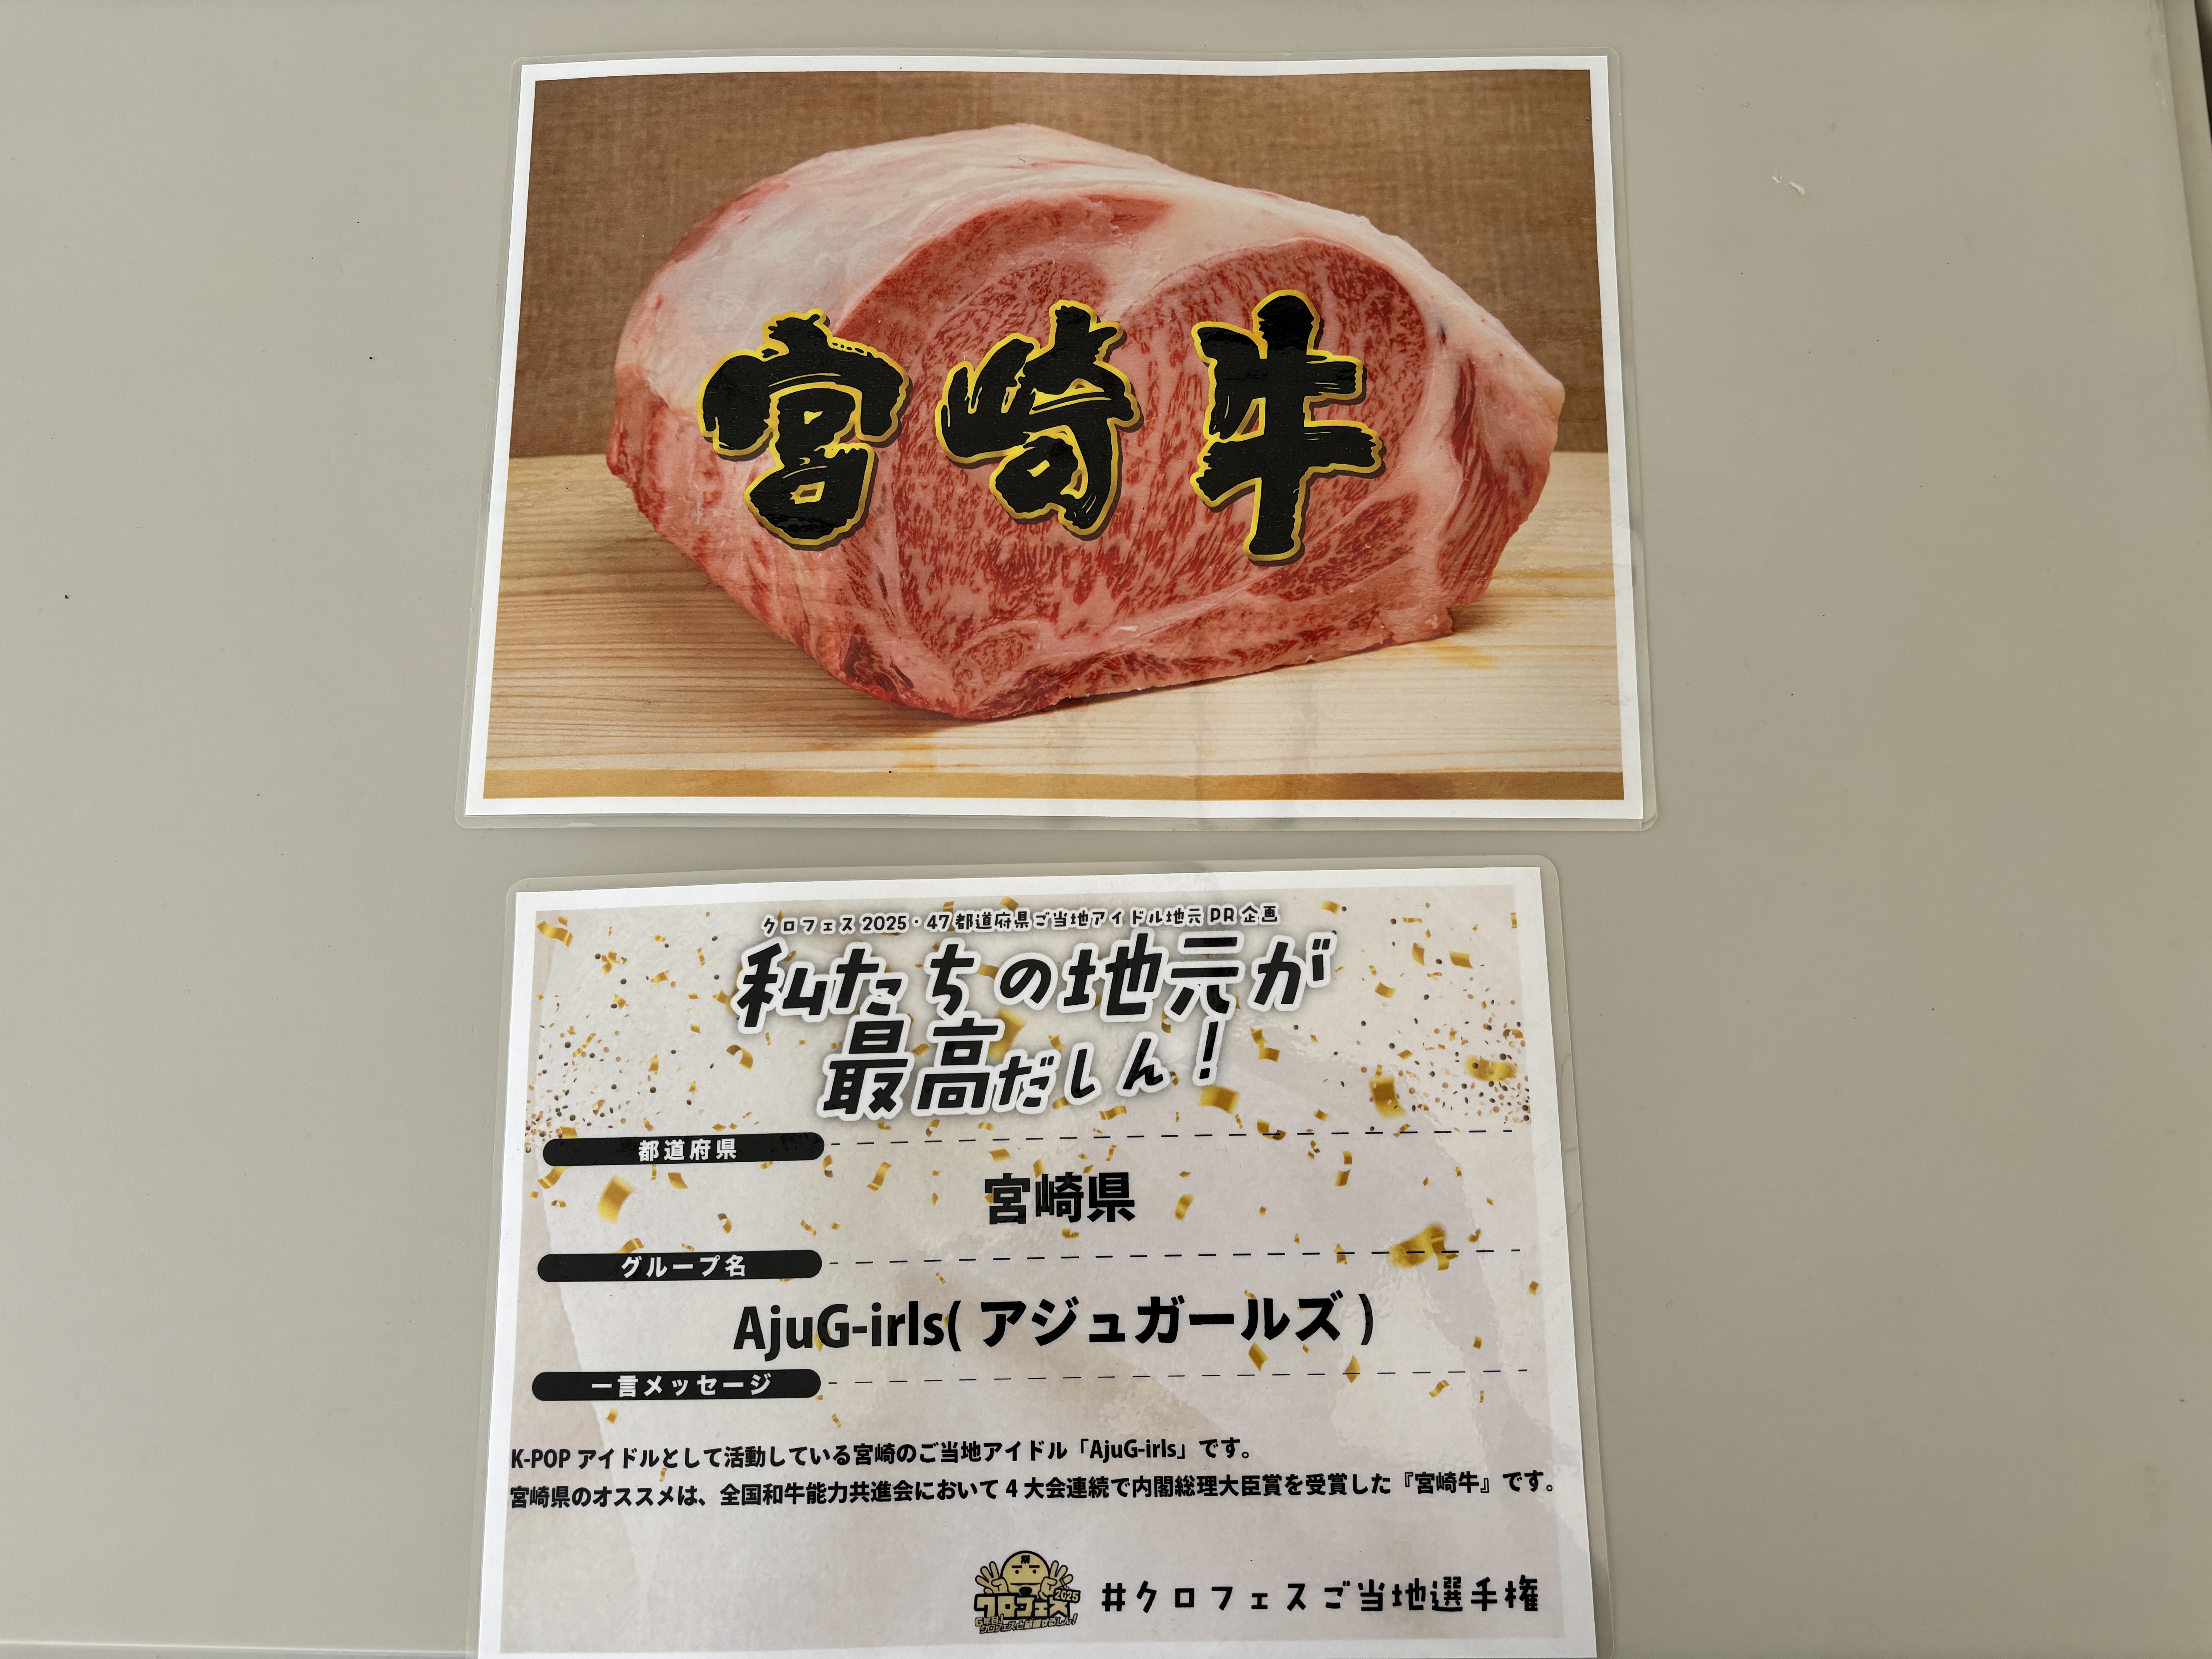 宮崎牛
クロフェス2025・47都道府県ご当地アイドル地元PR企画
私たちの地元が
最高だしん!
都道府県
宮崎県
グループ名
AjuG-irls(アジュガールズ)
一言メッセージ
K-POPアイドルとして活動している宮崎のご当地アイドル「AjuG-irls」です。
宮崎県のオススメは、全国和牛能力共進会において4大会連続で内閣総理大臣賞を受賞した『宮崎牛』です。
2025
クロフェス
#クロフェスご当地選手権